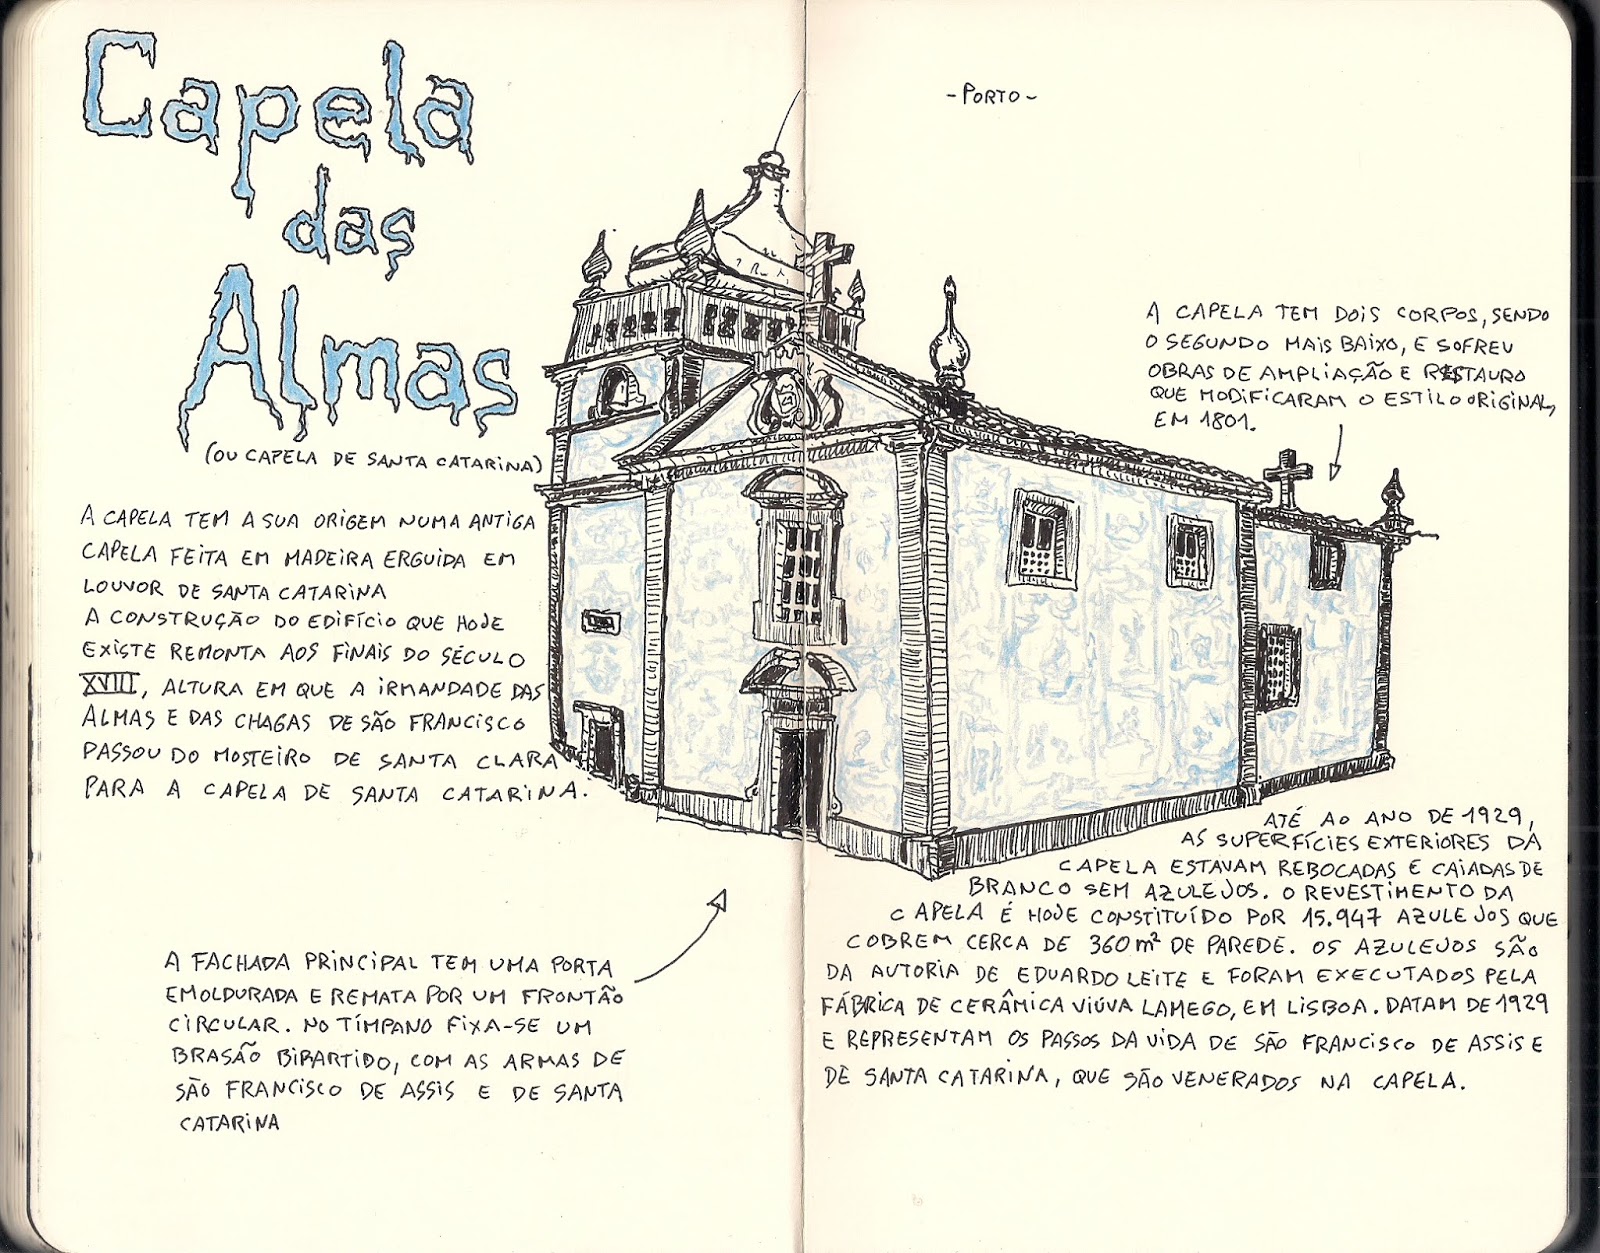 Capela
das
Almas
(OU CAPELA DE SANTA CATARINA)
A CAPELA TEM A SUA ORIGEM NUMA ANTIGA
CAPELA FEITA EM MADEIRA ERGUIDA EM
LOUVOR DE SANTA CATARINA
A CONSTRUÇÃO DO EDIFÍCIO QUE HOJE
EXISTE REMONTA AOS FINAIS DO SÉCULO
XVIII, ALTURA EM QUE A IRMANDADE DAS
ALMAS E DAS CHAGAS DE SÃO FRANCISCO
PASSOU DO MOSTEIRO DE SANTA CLARA
PARA A CAPELA DE SANTA CATARINA.
A FACHADA PRINCIPAL TEM UMA PORTA
EMOLDURADA E REMATA POR UM FRONTÃO
CIRCULAR. NO TÍMPANO FIXA-SE UM
BRASÃO BIPARTIDO, COM AS ARMAS DE
SÃO FRANCISCO DE ASSIS E DE SANTA
CATARINA
- PORTO -
A CAPELA TEM DOIS CORPOS, SENDO
O SEGUNDO MAIS BAIXO, E SOFREU
OBRAS DE AMPLIAÇÃO E RESTAURO
QUE MODIFICARAM O ESTILO ORIGINAL,
EM 1801.
ATÉ AO ANO DE 1929,
AS SUPERFÍCIES EXTERIORES DA
CAPELA ESTAVAM REBOCADAS E CAIADAS DE
BRANCO SEM AZULEJOS. O REVESTIMENTO DA
CAPELA É HOJE CONSTITUÍDO POR 15.947 AZULEJOS QUE
COBREM CERCA DE 360 m² DE PAREDE. OS AZULEJOS SÃO
DA AUTORIA DE EDUARDO LEITE E FORAM EXECUTADOS PELA
FÁBRICA DE CERÂMICA VIÚVA LAMEGO, EM LISBOA. DATAM DE 1929
E REPRESENTAM OS PASSOS DA VIDA DE SÃO FRANCISCO DE ASSIS E
DE SANTA CATARINA, QUE SÃO VENERADOS NA CAPELA.